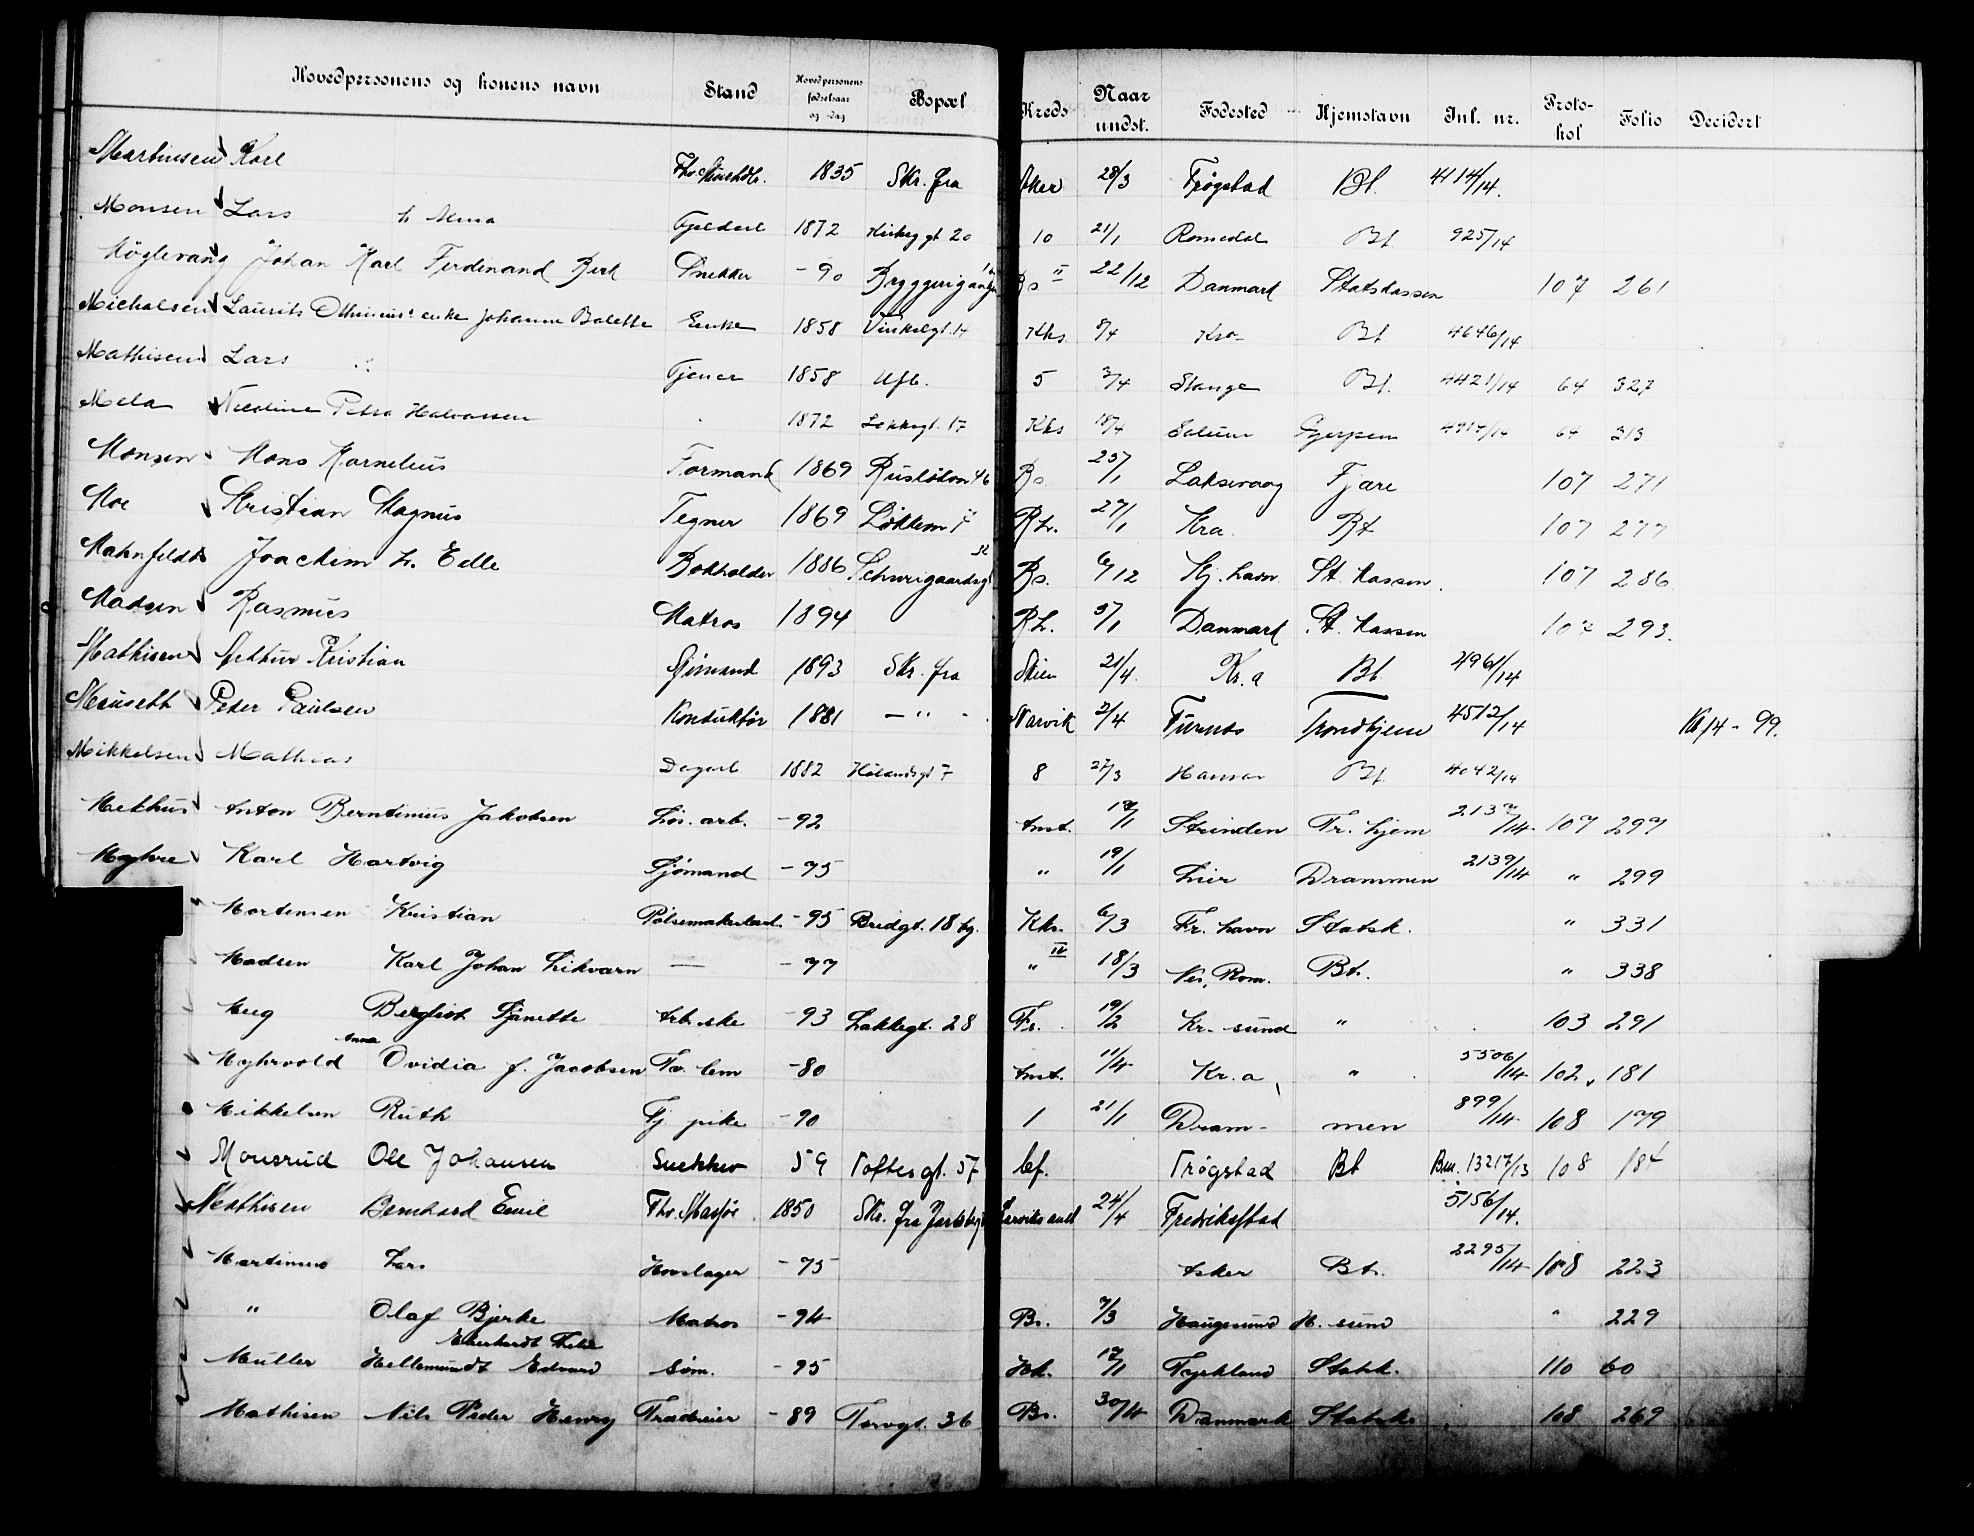 Hovedpersonens og konens navn Stand Hovedpersonens fødselsaar og -dag Bopæl Kreds Naar undst. Fødested Hjemstavn Jnl. nr. Proto-kol Folio Decidert
Martinsen Karl 1835 Skr. fra Aker 28/3 Trøgstad Bt. 4114/14.
Monsen Lars h. Alma 1872 20 10 21/1 Romedal Bt 925/14
Møglevang Johan Karl Ferdinand Berk Snekker -90 Bs II 22/12 Danmark Statskassen 107 261
Michalsen Laurits enke Johanne Bolette Enke 1858 Vinkelgt. 14 Khs 8/4 Kra Bt 4646/14
Mathisen Lars Tjener 1858 Ufb. 5 2/4 Stange Bt. 4421/14 64 327
Mela Nicoline Petra Halvorsen 1872 Løkkegt. 17 Khs 18/4 Solum Gjerpen 4917/14 64 313
Monsen Mons Kornelius Formand 1869 46 Bs 25/1 Laksevaag Fjære 107 271
Moe Kristian Magnus Tegner 1869 Rh. 27/1 Kra. Bt 107 277
Mahnfeldt Joachim h. Edle Bokholder 1886 Schweigaardsg Bs. 6/12 Kj. havn St. kassen 107 286
Madsen Rasmus Matros 1894 Rh. 5/1 Danmark St. kassen 107 293.
Mathisen Arthur Kristian Sjømand 1893 Skr. fra Skien 21/4. Kr.a Bt 4961/14
Meusett Peder Paulsen Konduktør 1881 — " - Narvik 2/4 Trondhjem 4512/14 Kt/4 - 99.
Mikkelsen Mathias Dagarb 1882 7 8 27/3 Hamar Bt 4042/14
Melhus Anton Berntinius Jakobsen Løs. arb. -92 Anst. 17/1 Strinden Tr. hjem 2137/14. 107 297
Myhre Karl Hartvig Sjømand -75 " 19/1 Lier Drammen 2139/14 " 299
Mortensen Kristian -95 Bredgt. 18 Khs. 6/3 Fr. havn Statsk. " 331
Madsen Karl Johan Likvarn — -77 " IV 18/3 Nes, Rom. Bt. " 338
Meeg Bergliot Arb. ske -93 Lakkegt. 28 Fs. 19/2 Kr. sund " 103 291
Myhrvold Anna Ovidia f. Jacobsen Fv. lem -80 Anst. 11/4 Kr.a " 5506/14 102, 181
Mikkelsen Ruth Tj pike -90 1 21/1 Dram- men 899/14 108 179
Mousrud Ole Johansen Snekker 59 Toftesgt. 57 Cf. Trøgstad Bt Bm. 13217/13 108 184
Mathisen Bernhard Emil 1850 Skr. fra 24/4 Fredrikstad 5156/14.
Martinsen Lars Hovslager -75 Asker Bt. 2295/14 108 223
" Olaf Bjerke Matros -94 Bs. 7/3 Haugesund H. sund " 229
Müller Hellemundt Edvard Eberhardt Søm. -95 Hk. 17/1 Tyskland Statsk. 110 60
Mathisen Nils Peder Henry Trædreier -89 Torvgt. 36 Bs. 30/4 Danmark Statsk. 108 269